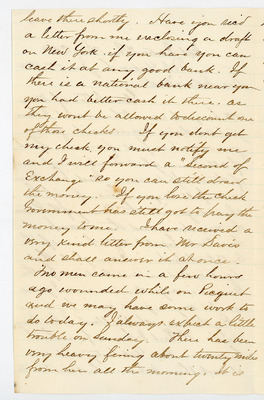 leave there shortly. Have you rec'd
a letter from me enclosing a draft
on New York. if you have you can
cash it at any good bank. If
there is a national bank near you
you had better cash it there. as
they wont be allowed to discount one
of those checks If you dont get
my check, you must notify me
and I will forward a "Second of
Exchange" so you can still draw
the money. If you lose the check
Government has still got to pay the
money to me. I have received a
very kind letter from Mr Davis
and shall answer it at once.
Two men came in a few hours
ago wounded while on Picquet
and we may have some work to
do today. I always expect a little
trouble on Sunday. There has been
very heavy firing about twenty miles
from here all the morning. It is